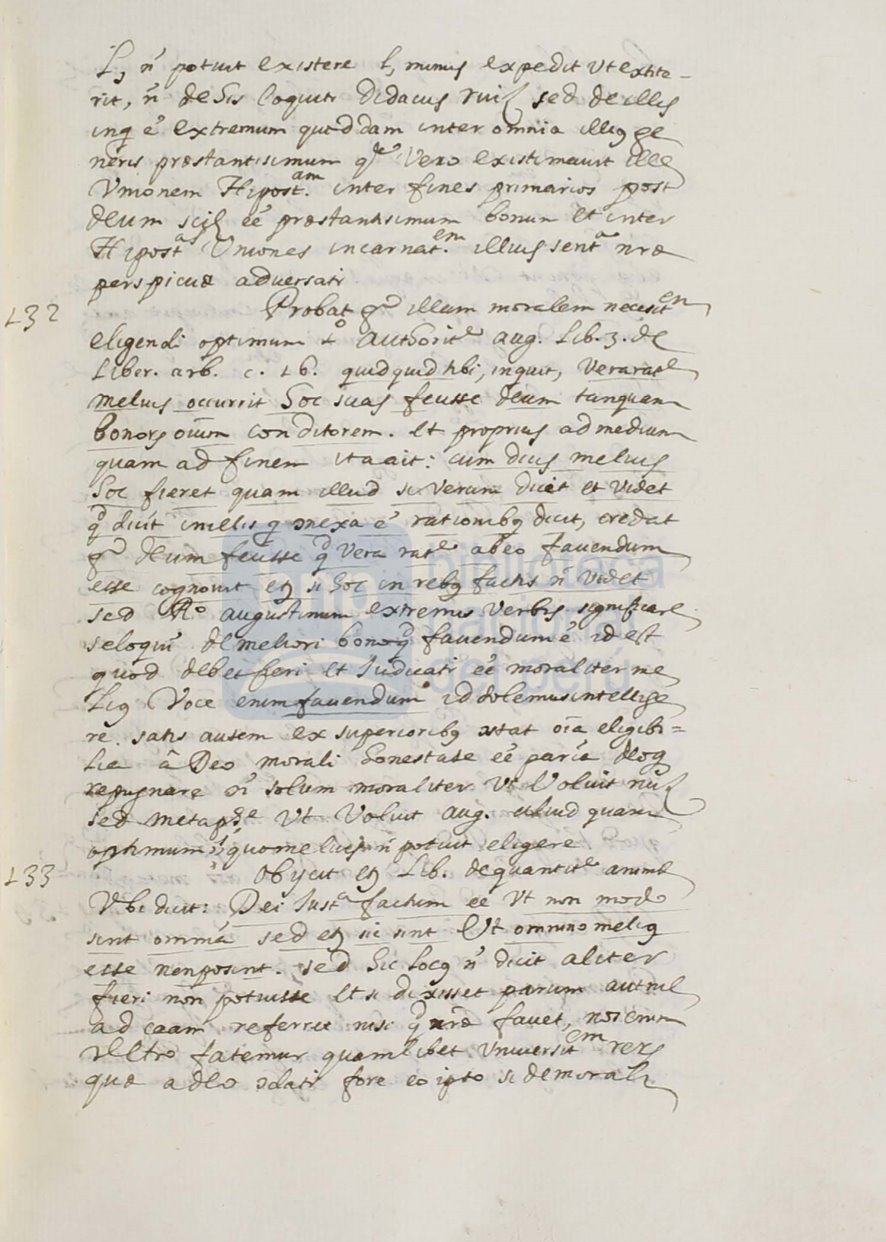 l, n̄ potuit existere l, minus expedit ut extite-
rit, n̄ de his loquitr Didacus ruiz sed de illis
inq̄ ē extremum quoddam inter omnia illiq ge
neris præstantisimum qᵈᵉ vero existimavit ille
Unionem Hipost.ᵃᵐ inter fines primarios post
deum scil eē præstantisimum bonum et inter
Hipostᵃ Uniones incarnat.ᵉᵐ illius sentᵃ nræ
perspicuæ adversatr
132 Probat qᵈ illum moralem necesitᵉᵐ
eligendi optimum 1º Authoritᵉ aug. Lib. 3. de
Liber. arb. c. 16. quidquid tibi, inquit, vera ratᵉ
melius occurrit hoc scias fecisse deum tanquam
bonorȝ oium conditorem. et proprius ad medium
quam ad finem ita ait: cum dicis melius
hoc fieret quam illud si verum dicit et videt
q̄ dicit in illis q nexa ē rationibq dicit, credat
qᵈ deum fecisse q̄ vera ratᵉ ab eo faciendum
esse cognovit etȝ si hoc in rebq factis n̄ videt
sed Rº augustinum extremis verbis significare
se loqui de meliori bonoq̄ faciendum ē id est
quod debet fieri et Judicatr eē moraliter me
liq Voce enim faciendum id solemus intellige
re. satis autem ex superioribq stat oīa eligibi=
lia â Deo morali honestate eē paria deoq
repugnare n̄ solum moraliter ut Voluit ruiz
sed metaphᵉ ut Voluit aug. aliud quam
optimum n̄ quo melius n̄ potuit eligere
133 Obijcit etȝ Lib. de quantitᵉ animæ
Ubi dicit: Dei Justᵃ factum eē ut non modo
sint omnia sed etȝ sic sint Ut omnino meliq
esse non posint. sed hic locq n̄ dicit aliter
fieri non potuisse et si dixisset parum aut nil
ad caām referret nisi q̄ nræ favet, nos enim
Ultro fatemur quamlibet Universitᵉᵐ rerȝ
quæ a deo datr fore eo ipso si de morali